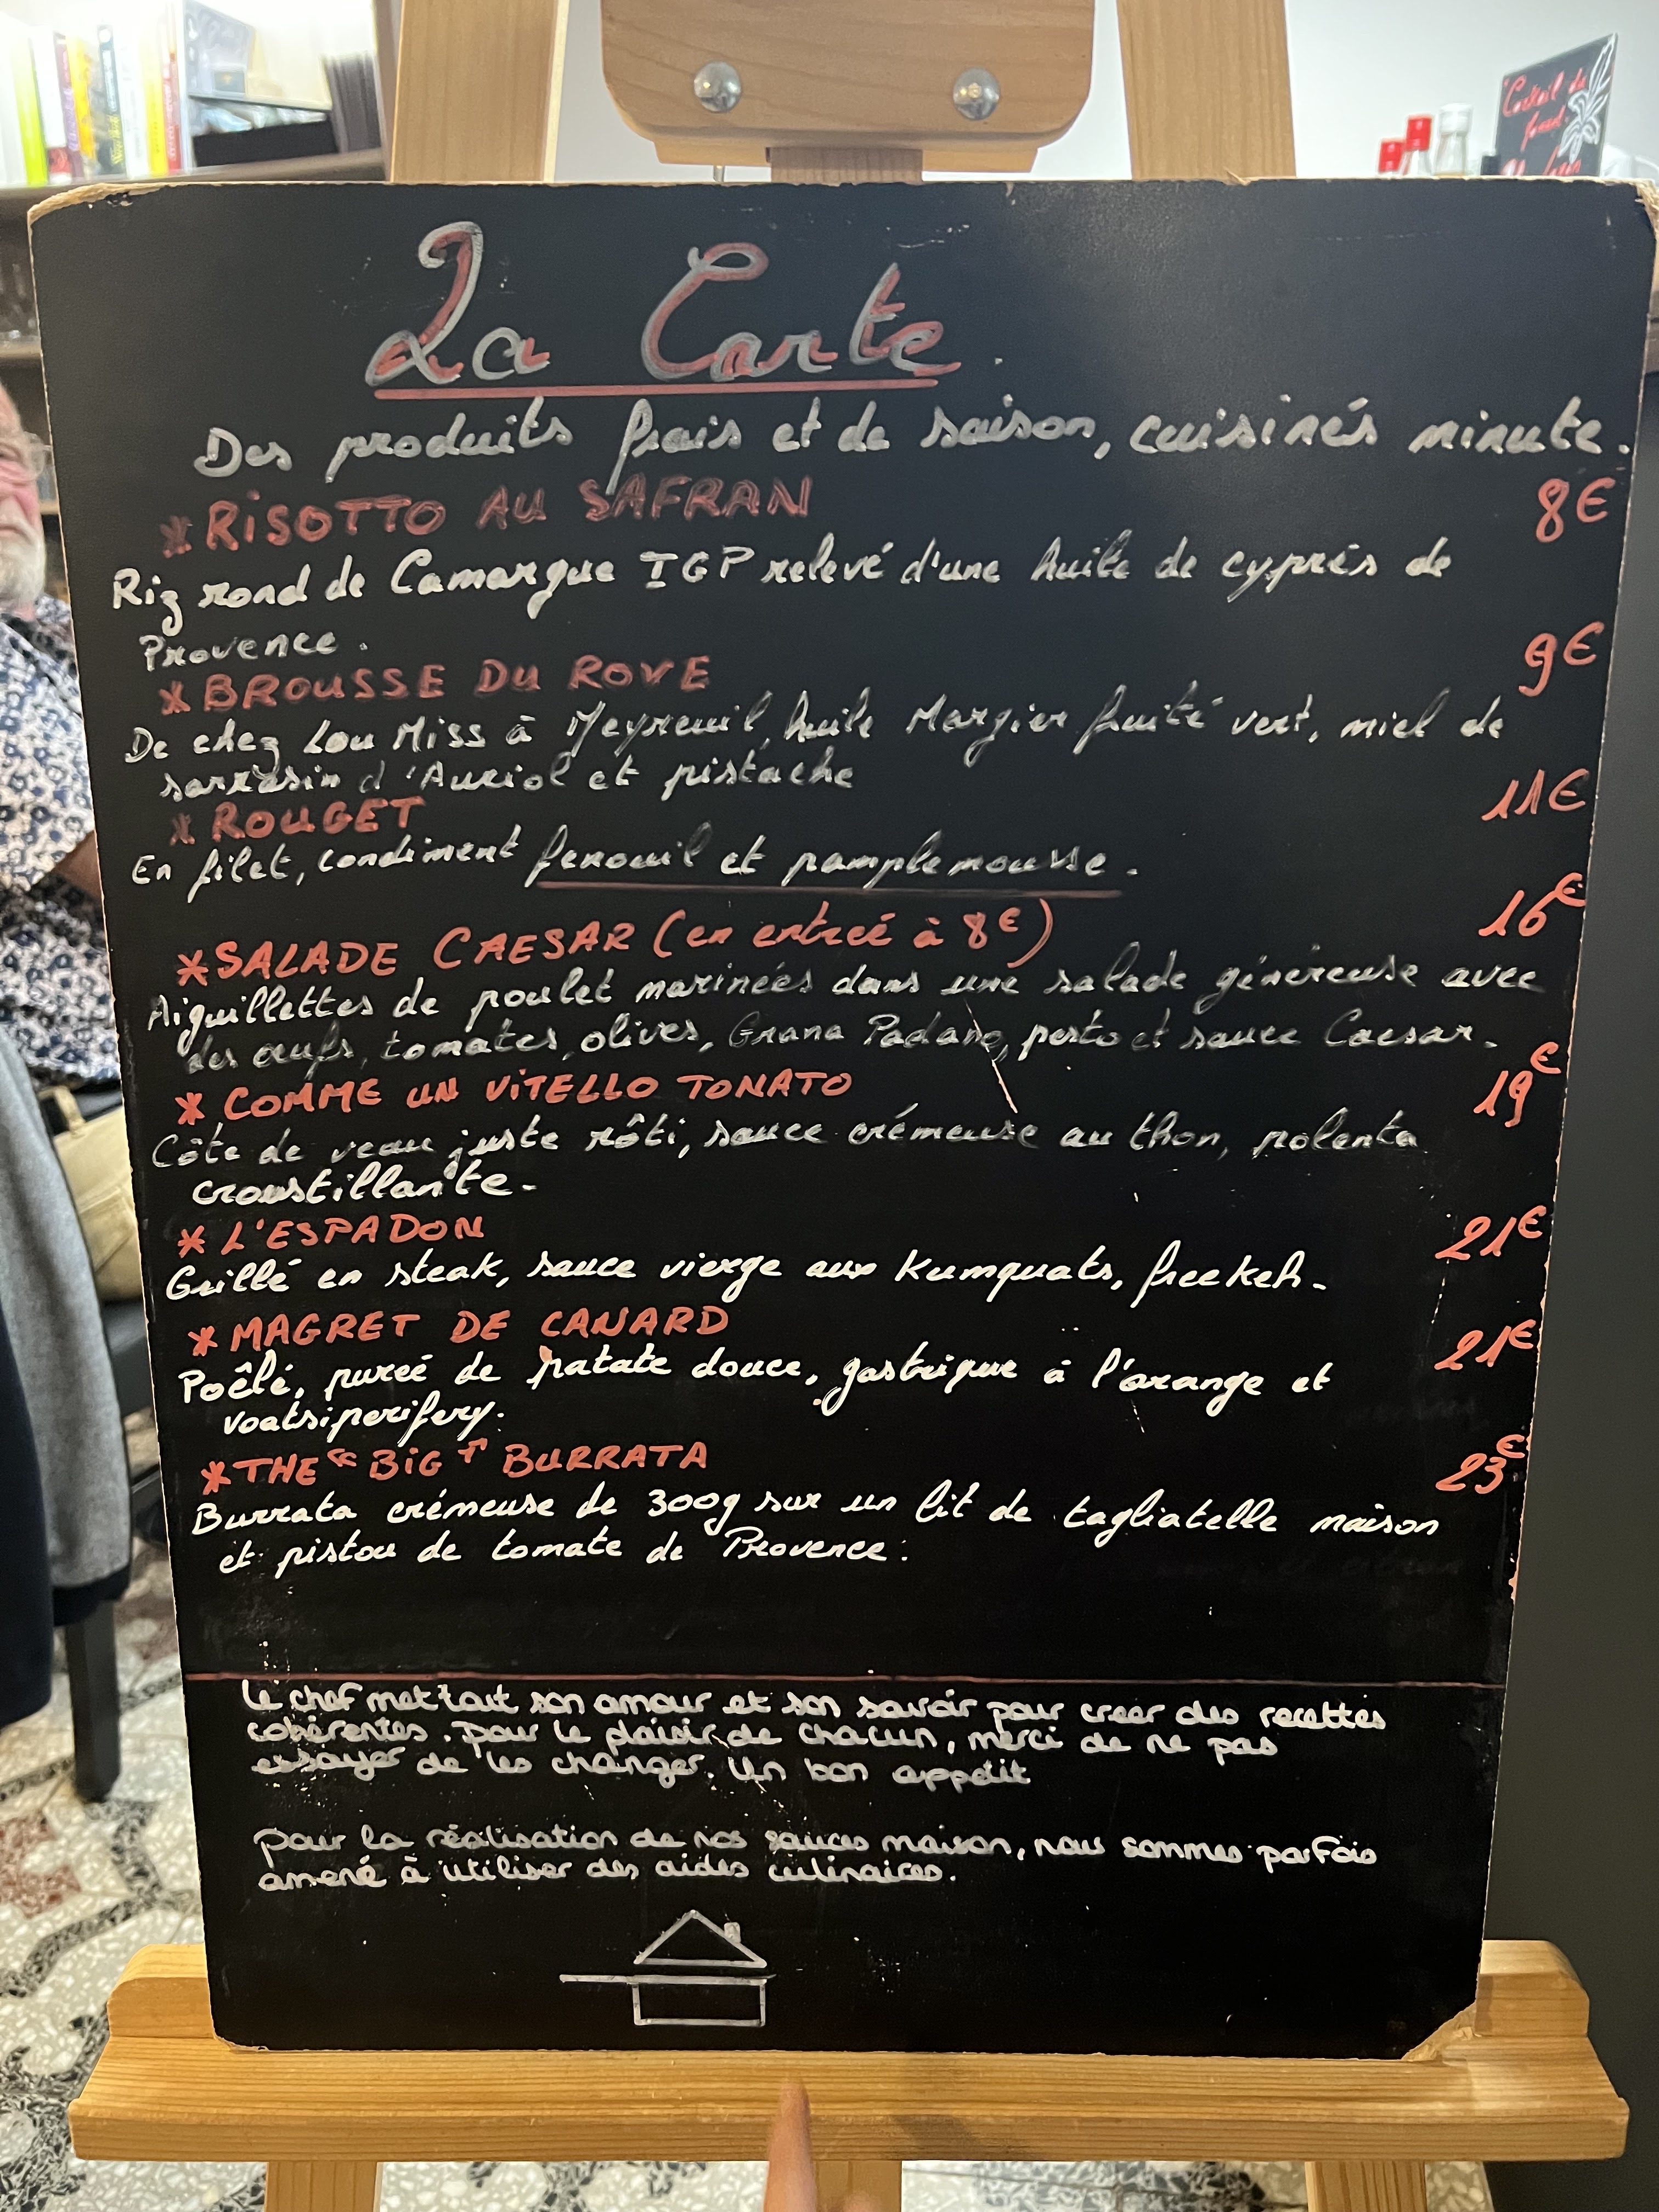 Cocktail du
La Carte
Des produits frais et de saison, cuisinés minute.
*RiSOTTO AU SAFRAN 8€
Riz rond de Camargue IGP relevé d'une huile de cyprès de
Provence.
*BROUSSE DU ROVE 9€
De chez Lou Miss à Meyreuil, huile Margier fruité vert, miel de
sarrasin d'Auriol et pistache
*ROUGET 11€
En filet, condiment fenouil et pamplemousse.
*SALADE CAESAR (en entrée à 8€) 16€
Aiguillettes de poulet marinées dans une salade généreuse avec
des œufs, tomates, olives, Grana Padano, pesto et sauce Caesar.
*COMME UN ViTELLO TONATO 19€
Côte de veau juste rôti, sauce crémeuse au thon, polenta
croustillante.
*L'ESPADON 21€
Grillé en steak, sauce vierge aux Kumquats, freekeh.
*MAGRET DE CANARD 21€
Poêlé, purée de patate douce, gastrique à l'orange et
voatsiperifery.
*THE "BiG" BURRATA 23€
Burrata crémeuse de 300g sur un lit de tagliatelle maison
et pistou de tomate de Provence.
Le chef mettant son amour et son savoir pour creer des recettes
cohérentes. pour le plaisir de chacun, merci de ne pas
essayer de les changer. Un bon appétit
pour la réalisation de nos sauces maison, nous sommes parfois
amené à utiliser des aides culinaires.